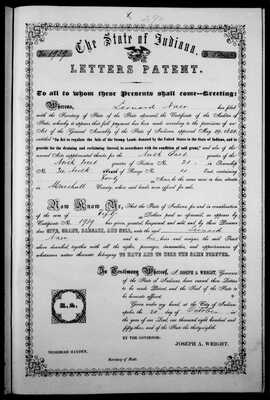 The State of Indiana.
LETTERS PATENT.
To all to whom these Presents shall come—Greeting:
Whereas, Leonard has filed
with the Secretary of State of the State aforesaid the Certificate of the Auditor of
State, whereby it appears that full payment has been made according to the provisions of an
Act of the General Assembly of the State of Indiana approved May 29, 1852,
entitled "An Act to regulate the sale of the Swamp Lands donated by the United States to the State of Indiana, and to
provide for the draining and reclaiming thereof, in accordance with the condition of said grant;" and also of the
several Acts supplemental thereto for the North East
quarter of Section No. in Township
No. North of Range No. East containing
Forty Acres, be the same more or less, situate
in Marshall County, where said lands were offered for sale.
Now Know Ye, That the State of Indiana for and in consideration
of the sum of Fifty Dollars paid as aforesaid, as appears by
Certificate No. 1919 has given, granted, bargained and sold, and by these Presents
does GIVE, GRANT, BARGAIN, AND SELL, unto the said Leonard
and to his heirs and assigns, the said Tract
above described together with all the rights, privileges, immunities, and appurtenances of
whatsoever nature thereunto belonging TO HAVE AND TO HOLD THE SAME FOREVER.
In Testimony Whereof, I, JOSEPH A. WRIGHT, Governor
of the State of Indiana, have caused these Letters
to be made Patent, and the Seal of the State to
be hereunto affixed.
Given under my hand, at the City of Indianapolis
upon the 20 day of October in
the year of our Lord, one thousand eight hundred and
fifty-three, and of the State the thirty-eighth.
BY THE GOVERNOR:
JOSEPH A. WRIGHT.
NEHEMIAH HAYDEN,
Secretary of State.